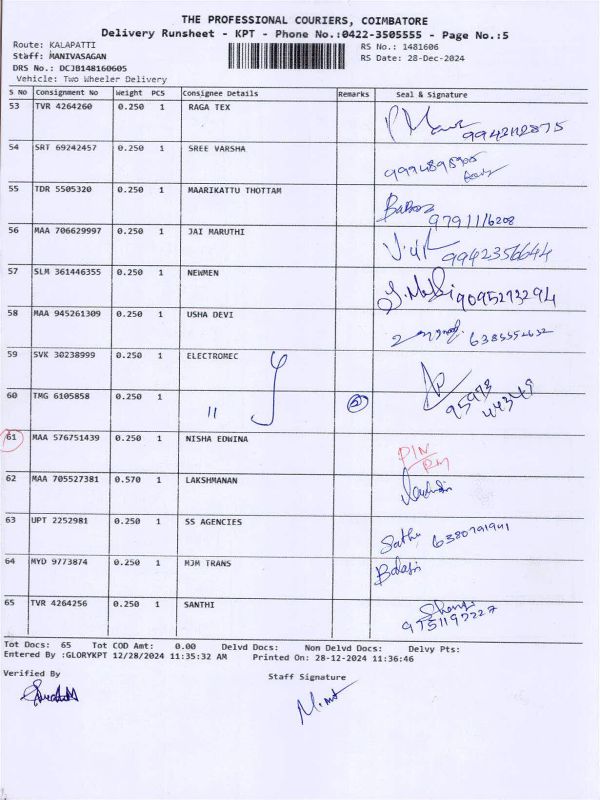 THE PROFESSIONAL COURIERS, COIMBATORE
Delivery Runsheet - KPT - Phone No.:0422-3505555 - Page No.:5
Route: KALAPATTI RS No.: 1481606
Staff: MANIVASAGAN RS Date: 28-Dec-2024
DRS No.: DCJB148160605
Vehicle: Two Wheeler Delivery
S No Consignment No Weight PCS Consignee Details Remarks Seal & Signature
53 TVR 4264260 0.250 1 RAGA TEX
9942112875
54 SRT 69242457 0.250 1 SREE VARSHA
55 TDR 5505320 0.250 1 MAARIKATTU THOTTAM
9791116208
56 MAA 706629997 0.250 1 JAI MARUTHI
9942356644
57 SLM 361446355 0.250 1 NEWMEN
9095273294
58 MAA 945261309 0.250 1 USHA DEVI
59 SVK 30238999 0.250 1 ELECTROMEC
60 TMG 6105858 0.250 1 11 2
61 MAA 576751439 0.250 1 NISHA EDWINA
PIN
RM
62 MAA 705527381 0.570 1 LAKSHMANAN
63 UPT 2252981 0.250 1 SS AGENCIES
Sathi 6380791941
64 MYD 9773874 0.250 1 MJM TRANS
Balaji
65 TVR 4264256 0.250 1 SANTHI
9751197227
Tot Docs: 65 Tot COD Amt: 0.00 Delvd Docs: Non Delvd Docs: Delvy Pts:
Entered By :GLORYKPT 12/28/2024 11:35:32 AM Printed On: 28-12-2024 11:36:46
Verified By Staff Signature